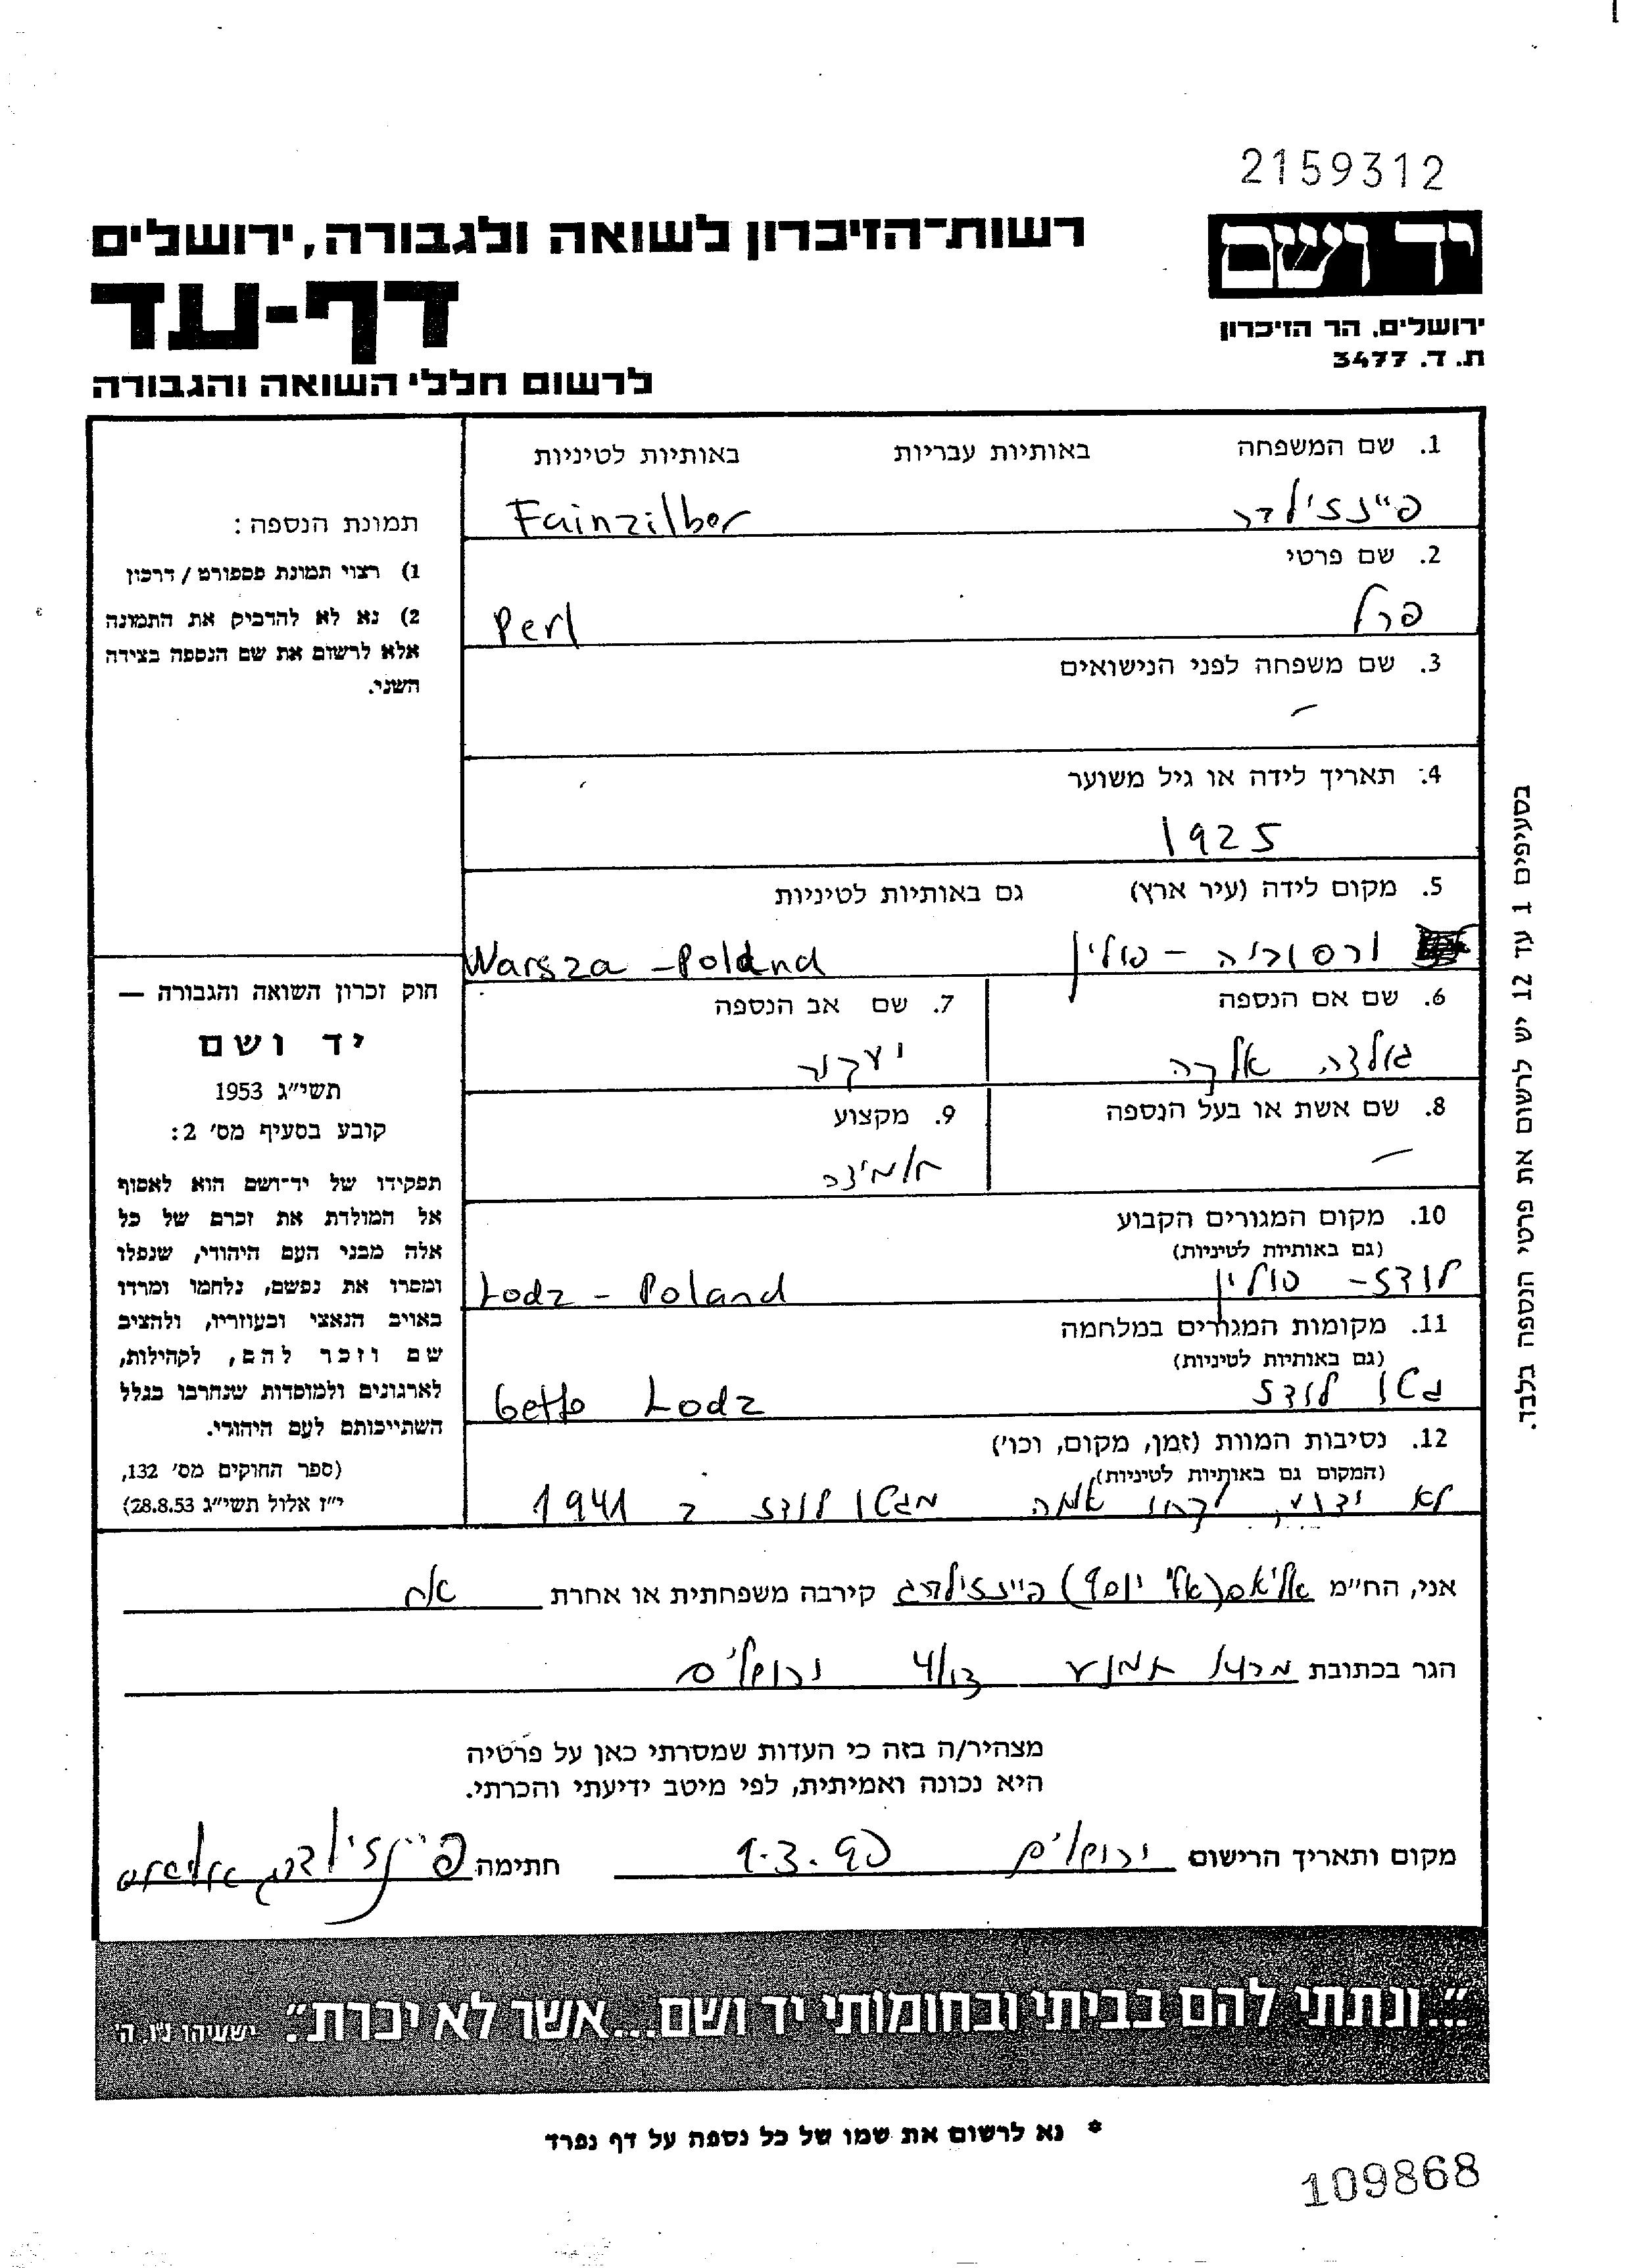 2159312
רשות-הזיכרון לשואה ולגבורה, ירושלים
יד ושם
דף-עד
ירושלים, הר הזיכרון
ת. ד. 3477
לרשום חללי השואה והגבורה
1. שם המשפחה באותיות עבריות באותיות לטיניות
פיינזילבר Fainzilber
2. שם פרטי
פרל Perl
3. שם משפחה לפני הנישואים
-
4. תאריך לידה או גיל משוער
1925
5. מקום לידה (עיר ארץ) גם באותיות לטיניות
ורסוביה - פולין Warsza - Poland
6. שם אם הנספה 7. שם אב הנספה
גולדה יעקב
8. שם אשת או בעל הנספה 9. מקצוע
- תלמידה
10. מקום המגורים הקבוע
(גם באותיות לטיניות)
לודז - פולין Lodz - Poland
11. מקומות המגורים במלחמה
(גם באותיות לטיניות)
גטו לודז Getto Lodz
12. נסיבות המוות (זמן, מקום, וכו')
(המקום גם באותיות לטיניות)
לא ידוע, לקחו אותה מגטו לודז ב 1941
תמונת הנספה:
1) רצוי תמונת פספורט / דרכון
2) נא לא להדביק את התמונה
אלא לרשום את שם הנספה בצידה
השני.
חוק זכרון השואה והגבורה —
יד ושם
תשי"ג 1953
קובע בסעיף מס' 2:
תפקידו של יד-ושם הוא לאסוף
אל המולדת את זכרם של כל
אלה מבני העם היהודי, שנפלו
ומסרו את נפשם, נלחמו ומרדו
באויב הנאצי ובעוזריו, ולהציב
שם וזכר להם, לקהילות,
לארגונים ולמוסדות שנחרבו בגלל
השתייכותם לעם היהודי.
(ספר החוקים מס' 132,
י"ז אלול תשי"ג 28.8.53)
בסעיפים 1 עד 12 יש לרשום את פרטי הנספה בלבד.
אני, הח"מ אליאס (אלי יוסף) פיינזילברג קירבה משפחתית או אחרת אח
הגר בכתובת 4/ ירושלים
מצהיר/ה בזה כי העדות שמסרתי כאן על פרטיה
היא נכונה ואמיתית, לפי מיטב ידיעתי והכרתי.
מקום ותאריך הרישום ירושלים 1.3.90 חתימה פיינזילברג אליאס
"...ונתתי להם בביתי ובחומותי יד ושם...אשר לא יכרת". ישעיהו נ"ו, ה'
* נא לרשום את שמו של כל נספה על דף נפרד
109868